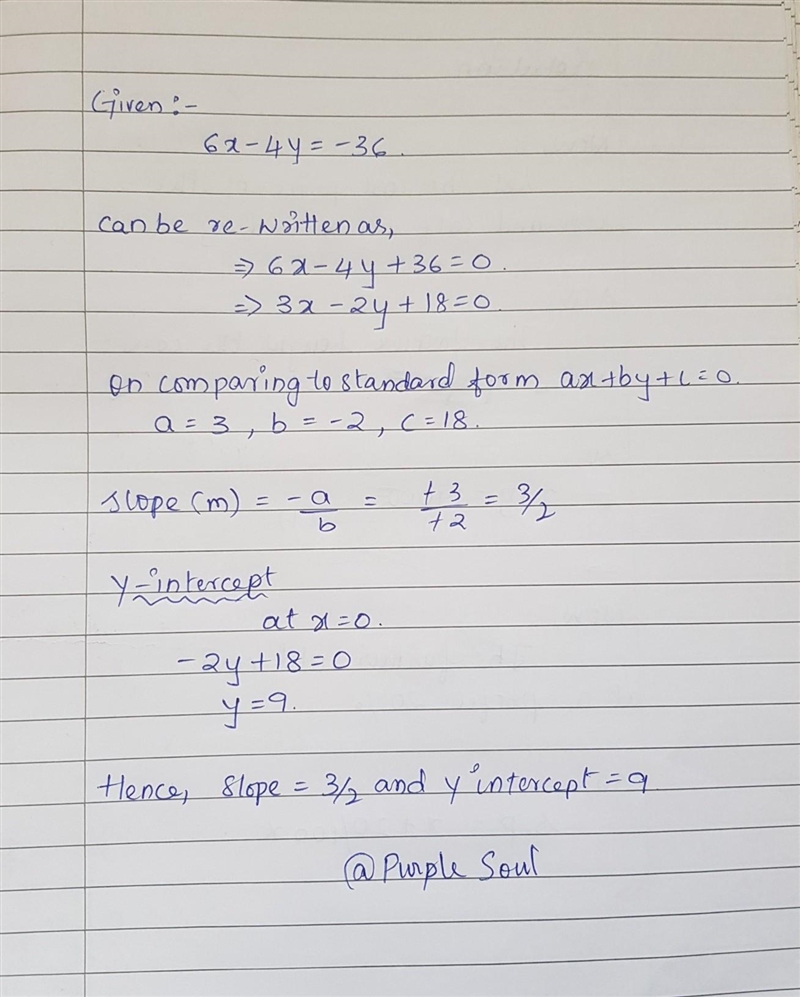 Given:-
6x-4y=-36.
can be re-written as,
⇒ 6x-4y+36=0.
⇒ 3x-2y+18=0.
On comparing to standard form ax+by+c=0.
a=3, b=-2, c=18.
Slope (m) = -a/b = +3/+2 = 3/2
Y-intercept
at x=0.
-2y+18=0
y=9.
Hence, Slope = 3/2 and Y intercept = 9
@Purple Soul